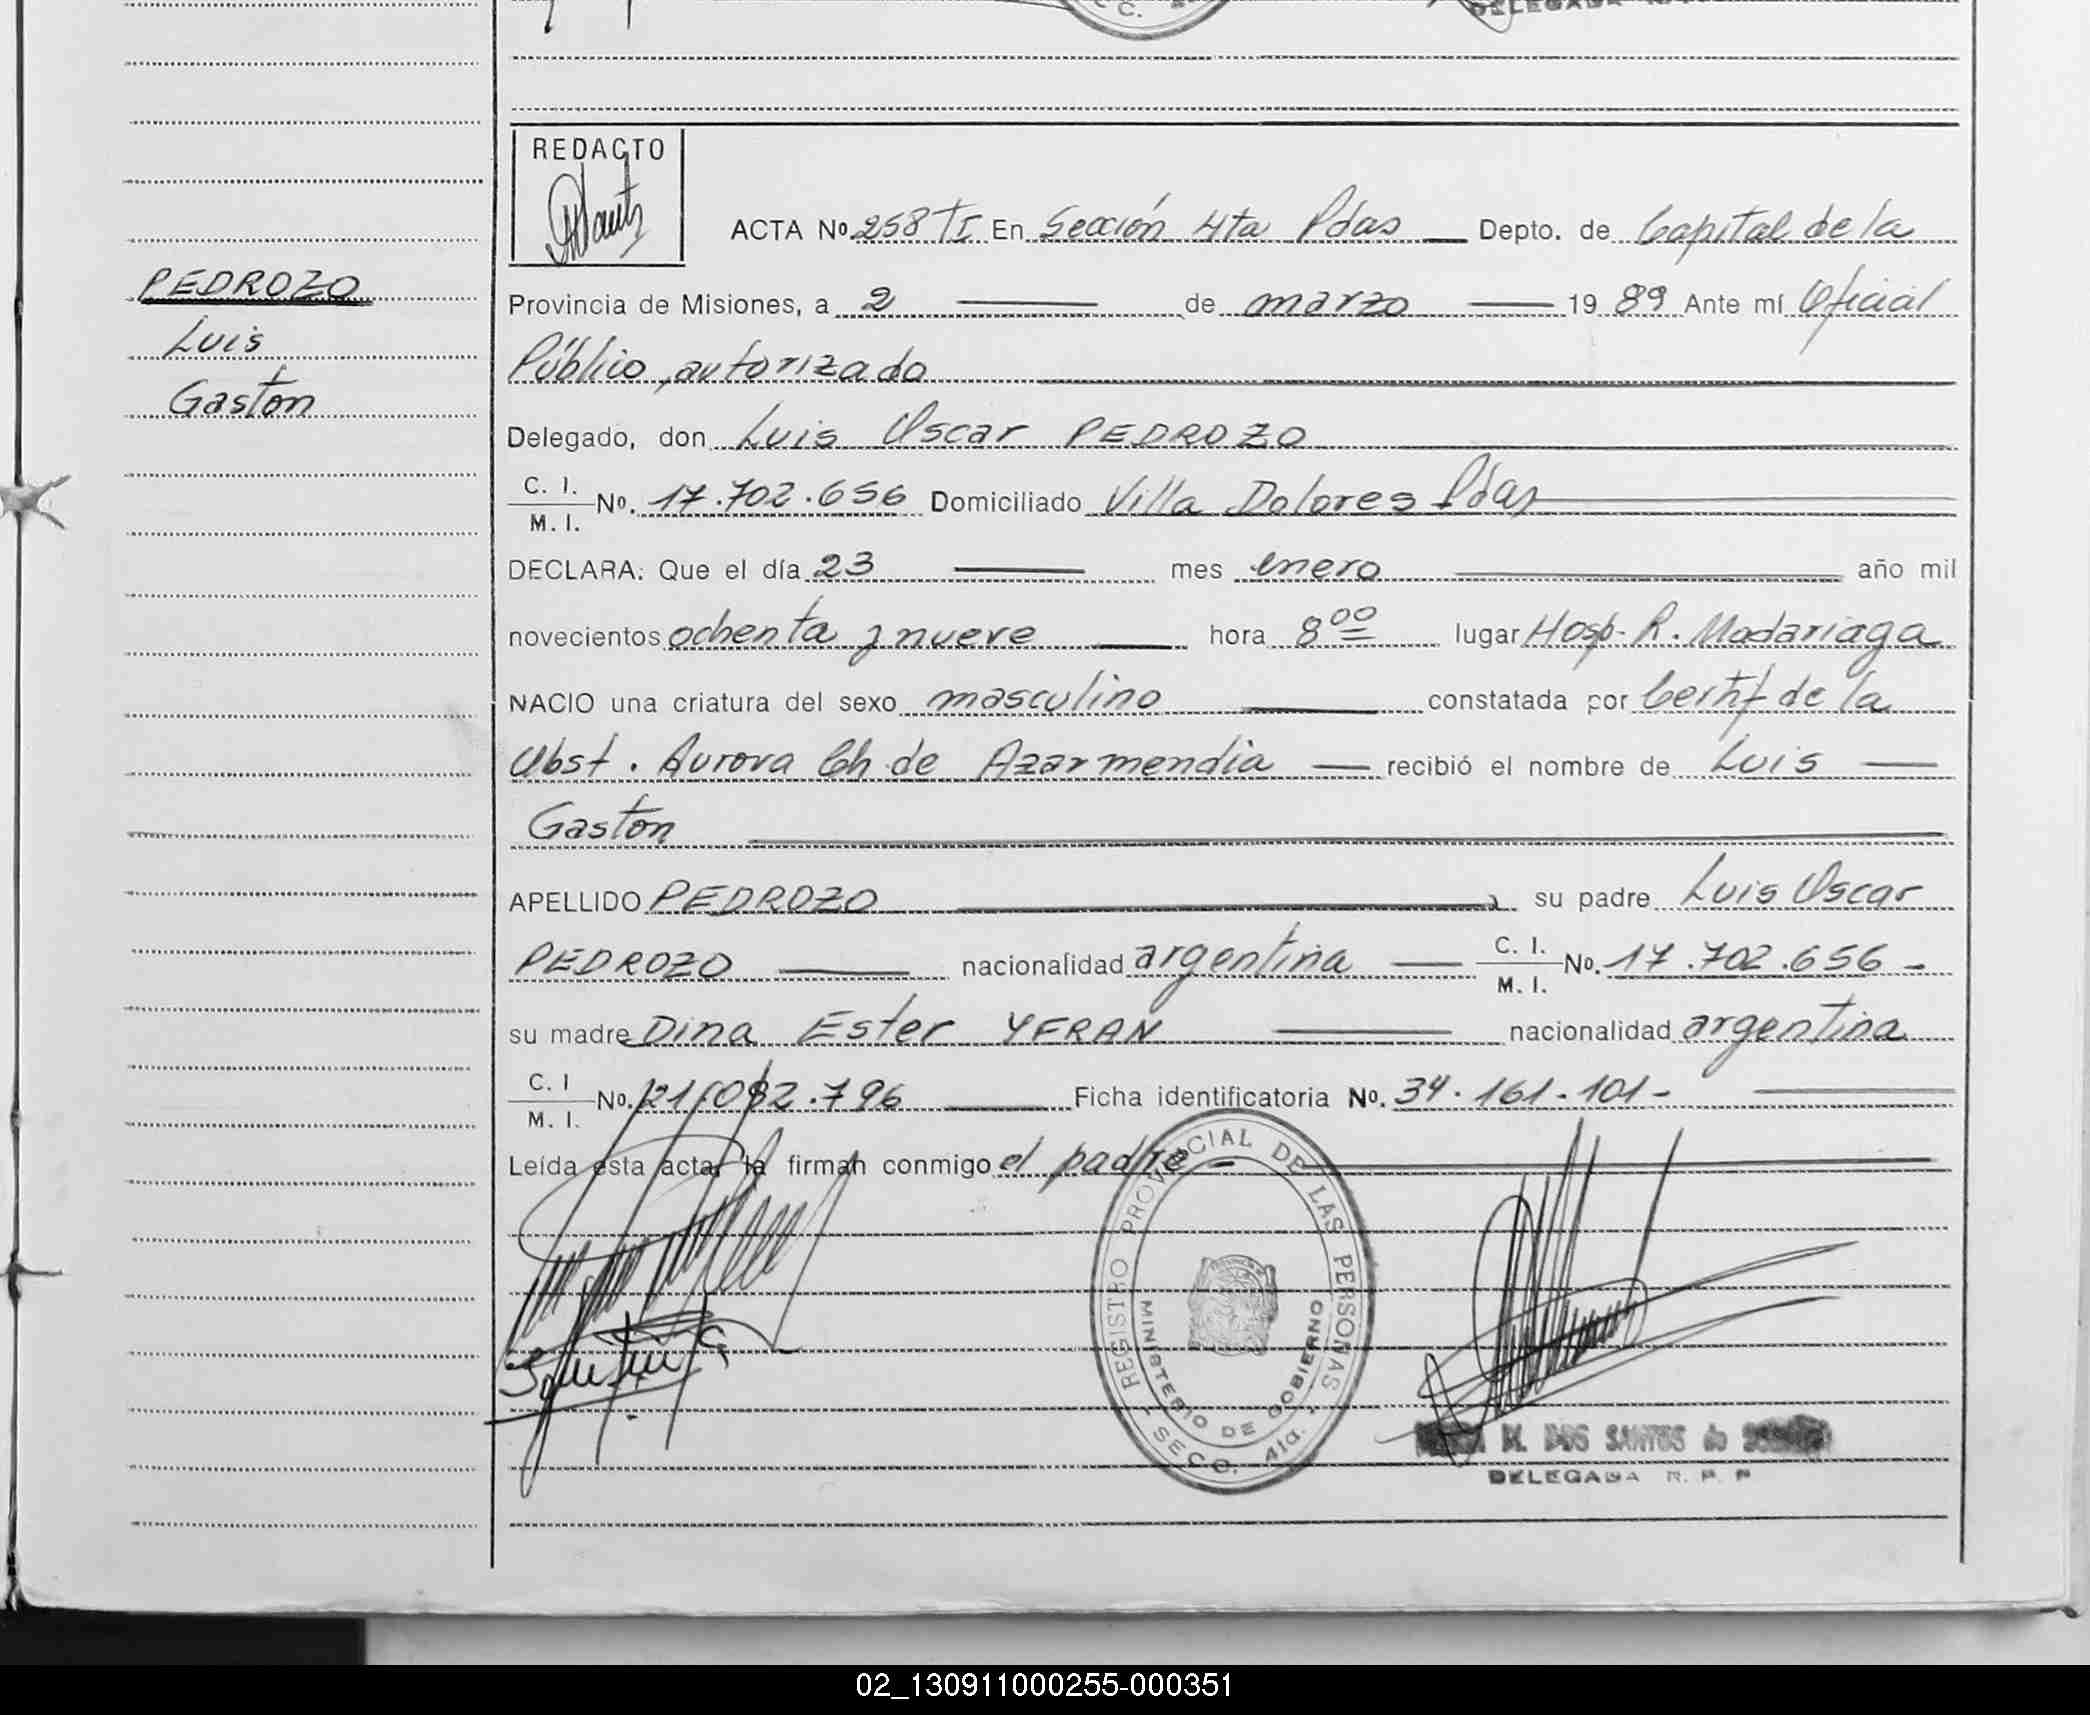 C. C.
DELEGADA
REDACTO
ACTA Nº 258 TI En Sección 4ta Pdas Depto. de Capital de la
PEDROZO
Provincia de Misiones, a 2 de marzo 1989 Ante mí Oficial
Luis
Público, autorizado
Gastón
Delegado, don Luis Oscar PEDROZO
C. I.
M. I. Nº. 17.702.656 Domiciliado Villa Dolores Pdas
DECLARA: Que el día 23 mes enero año mil
novecientos ochenta y nueve hora 8⁰⁰ lugar Hosp. R. Madariaga
NACIO una criatura del sexo masculino constatada por Certif de la
Obst. Aurora Ch. de Azarmendia recibió el nombre de Luis
Gastón
APELLIDO PEDROZO, su padre Luis Oscar
PEDROZO nacionalidad argentina C. I.
M. I. Nº. 17.702.656-
su madre Dina Ester YFRAN nacionalidad argentina
C. I
M. I. Nº. 21.082.796 Ficha identificatoria Nº. 34.161.101-
Leída esta acta, la firman conmigo el padre-
REGISTRO PROVINCIAL DE LAS PERSONAS
MINISTERIO DE GOBIERNO
- SECC. 4ta. -
M. DOS SANTOS de
DELEGADA R. P. P
02_130911000255-000351